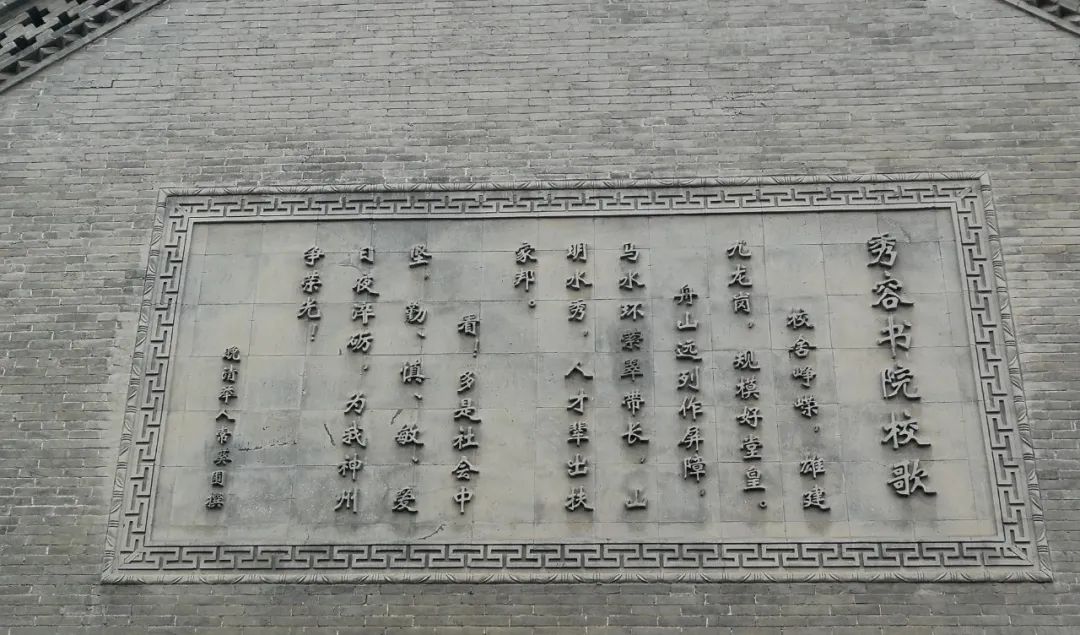 秀容书院校歌
校舍峥嵘，雄建
九龙岗，规模好堂皇。
舟山远列作屏障，
马水环萦翠带长，山
明水秀，人才辈出扶
家邦。
看！多是社会中
坚，勤、慎、敏、爱
日夜淬砺，为我神州
争荣光！
晚清举人常英圃撰